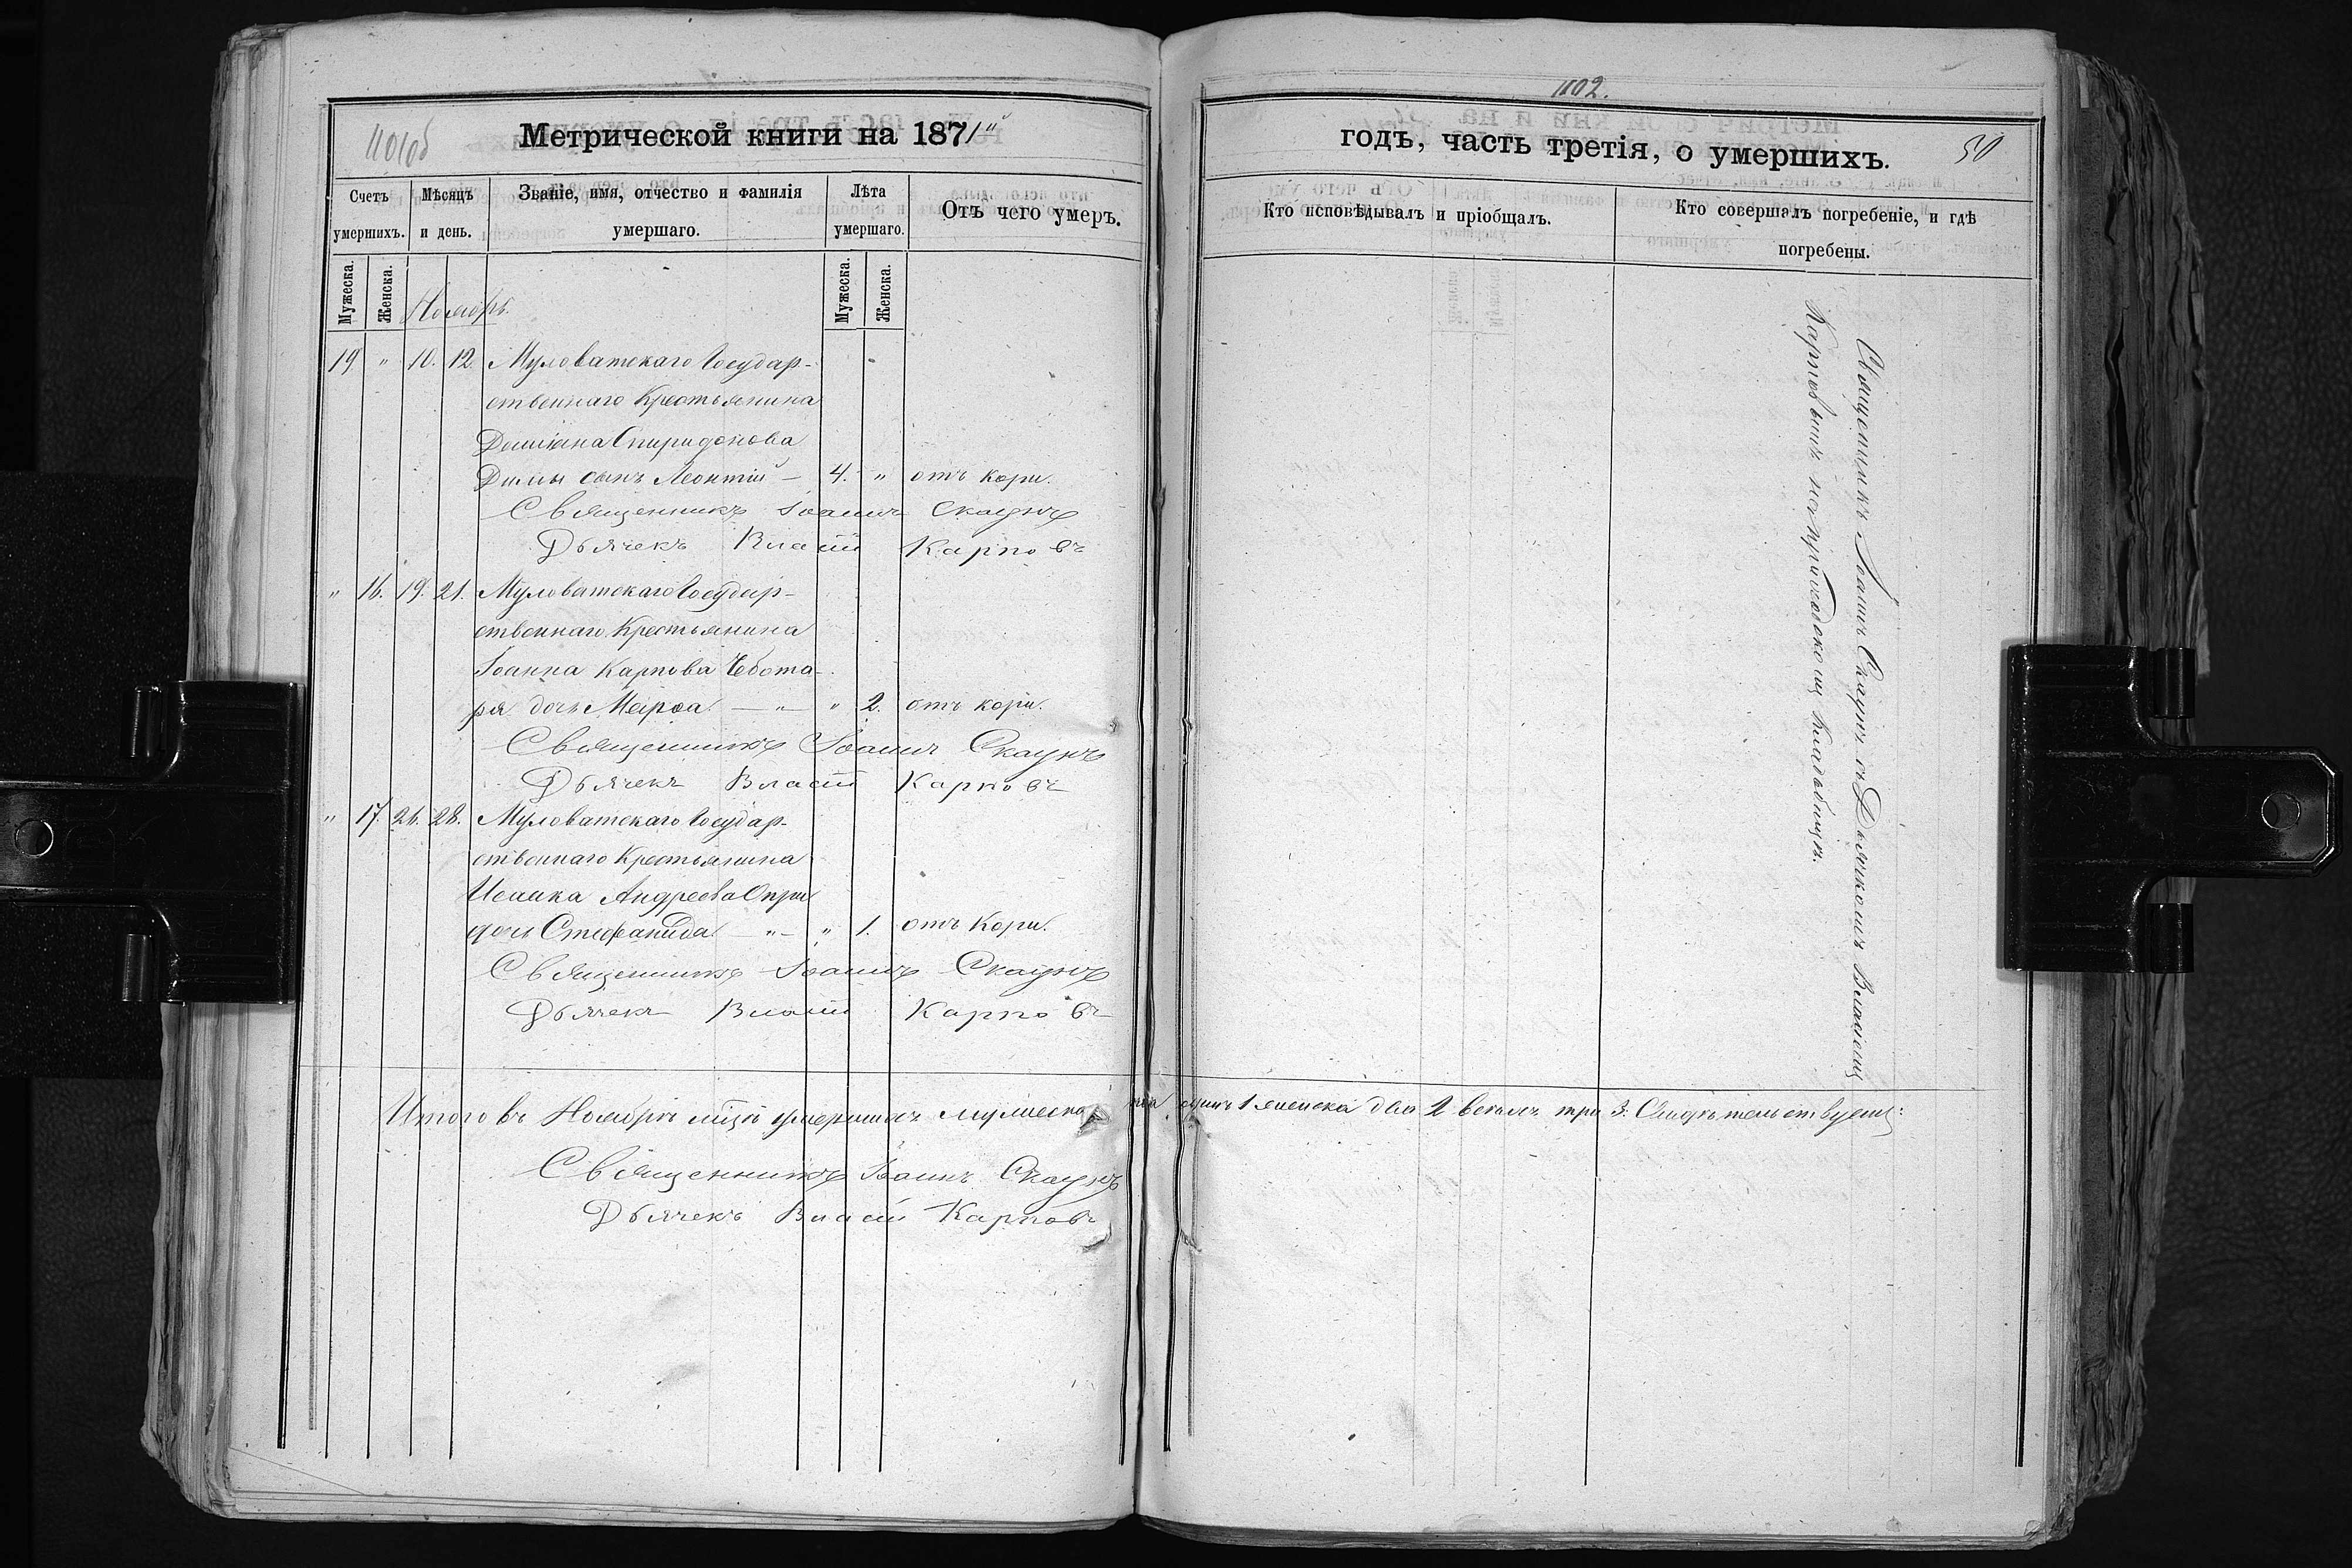 1101об
Метрической книги на 1871й
Счетъ умершихъ.
Мѣсяцъ и день.
Званіе, имя, отчество и фамилія умершаго.
Лѣта умершаго.
Отъ чего умеръ.
Мужеска. Женска. Мужеска. Женска.
Ноябрь.
19 " 10. 12. Муловатскаго Государ-
ственнаго Крестьянина
Даміана Спиридонова
Димы сынъ Леонтій – 4. " отъ кори.
Священникъ Іоаннъ Скаунъ
Дьячекъ Власій Карповъ
" 16. 19. 21. Муловатскаго Государ-
ственнаго Крестьянина
Іоанна Карпова Чебота-
ря дочь Марѳа – " – " 2. отъ кори.
Священникъ Іоаннъ Скаунъ
Дьячекъ Власій Карповъ
" 17. 26. 28. Муловатскаго Государ-
ственнаго Крестьянина
Исаака Андреева Опри
дочь Стефанида – " – " 1. отъ Кори.
Священникъ Іоаннъ Скаунъ
Дьячекъ Власій Карповъ
Итого въ Ноябрѣ мцѣ умершихъ мужеска пола одинъ 1 женска два 2 всѣхъ три 3. Свидѣтельствуемъ:
Священникъ Іоаннъ Скаунъ
Дьячекъ Власій Карповъ
1102.
годъ, часть третія, о умершихъ.
50
Кто исповѣдывалъ и пріобщалъ.
Кто совершалъ погребеніе, и гдѣ погребены.
Священникъ Іоаннъ Скаунъ съ Дьячкомъ Власіемъ
Карповымъ на приходскомъ кладбищѣ.